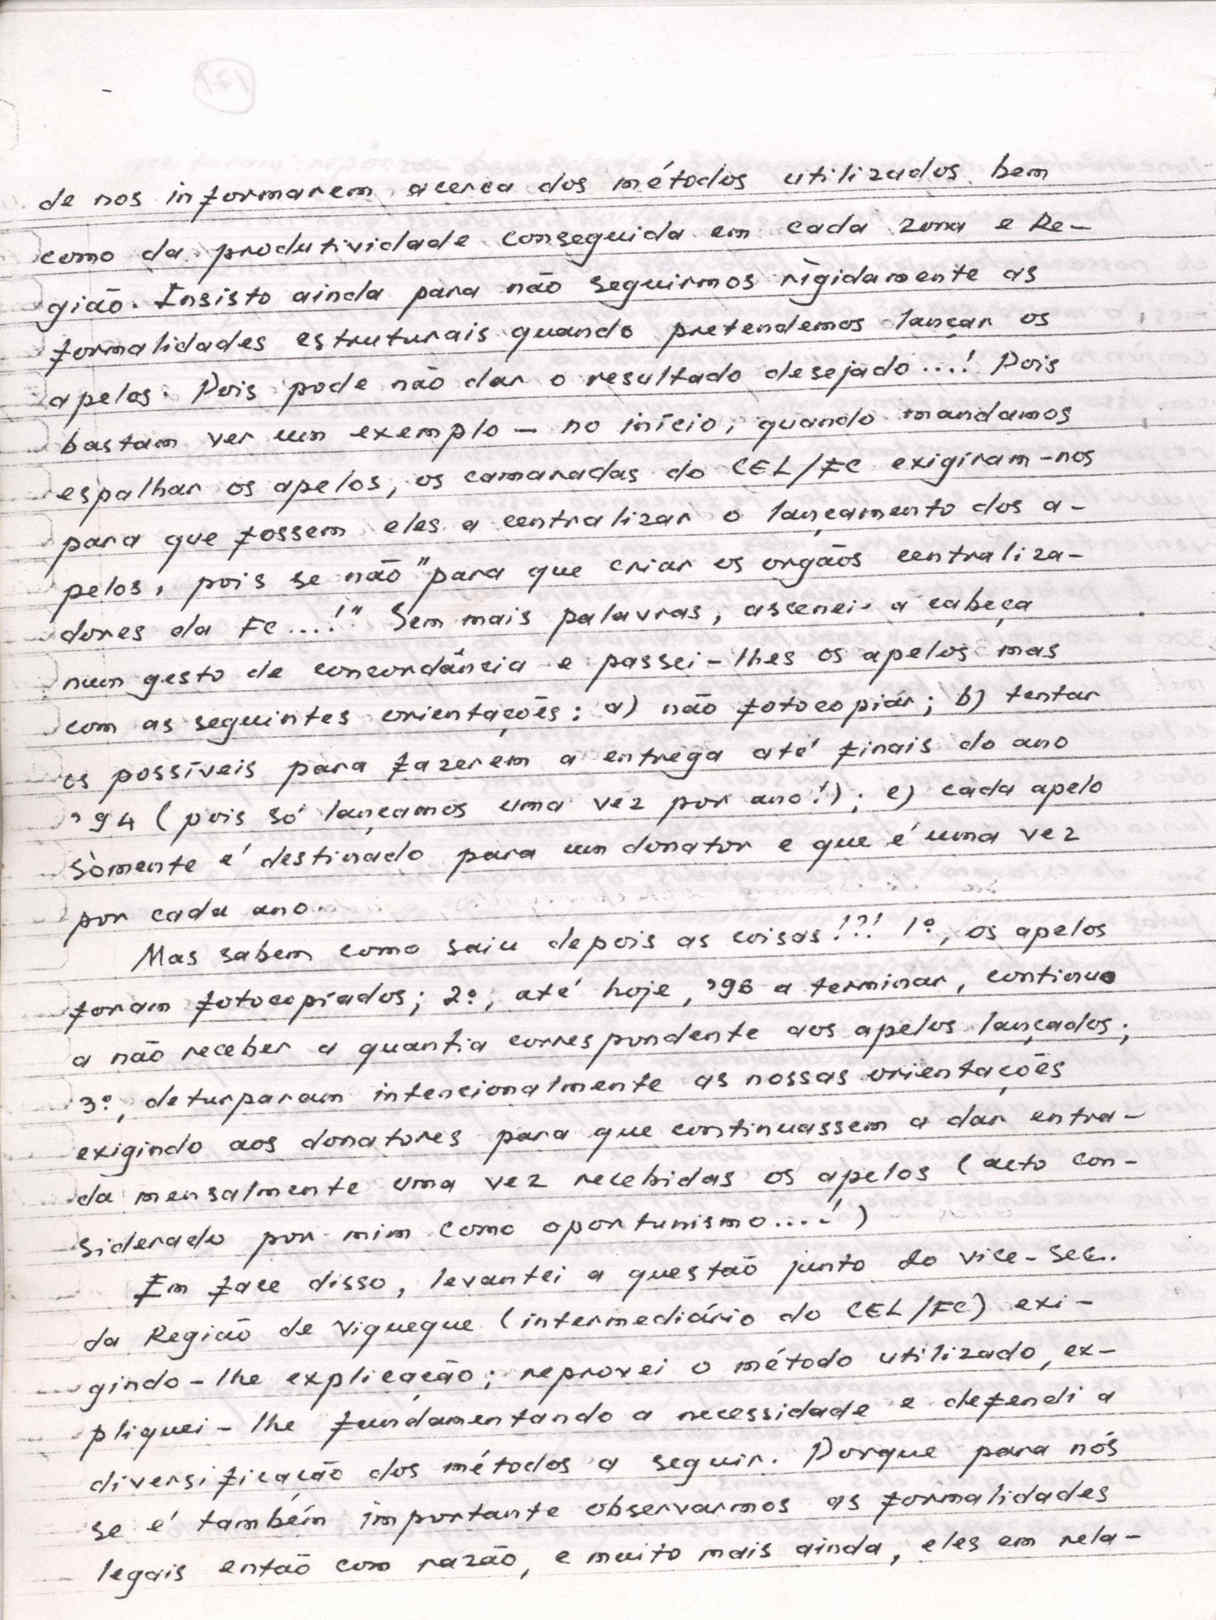 de nos informarem acerca dos métodos utilizados bem
como da produtividade conseguida em cada zona e Re-
gião. Insisto ainda para não seguirmos rìgidamente as
formalidades estruturais quando pretendemos lançar os
apelos. Pois pode não dar o resultado desejado...! Pois
bastam ver um exemplo - no início, quando mandamos
espalhar os apelos, os camaradas do CEL/FC exigiram-nos
para que fossem eles a centralizar o lançamento dos a-
pelos, pois se não "para que criar os orgãos centraliza-
dores da FC...!" Sem mais palavras, ascenei a cabeça
num gesto de concordância e passei-lhes os apelos mas
com as seguintes orientações: a) não fotocopiár; b) tentar
os possíveis para fazerem a entrega até finais do ano
'94 (pois só lançamos uma vez por ano!); c) cada apelo
sòmente é destinado para um donator e que é uma vez
por cada ano.
Mas sabem como saiu depois as coisas!?! 1º, os apelos
foram fotocopiados; 2º, até hoje, '96 a terminar, continuo
a não receber a quantia correspondente aos apelos lançados;
3º, deturparam intencionalmente as nossas orientações
exigindo aos donatores para que continuassem a dar entra-
da mensalmente uma vez recebidas os apelos (acto con-
siderado por mim como oportunismo...!)
Em face disso, levantei a questão junto do vice-sec.
da Região de Viqueque (intermediário do CEL/FC) exi-
gindo-lhe explicação; reprovei o método utilizado, ex-
pliquei-lhe fundamentando a necessidade e defendi a
diversificação dos métodos a seguir. Porque para nós
se é também importante observarmos as formalidades
legais então com razão, e muito mais ainda, eles em rela-